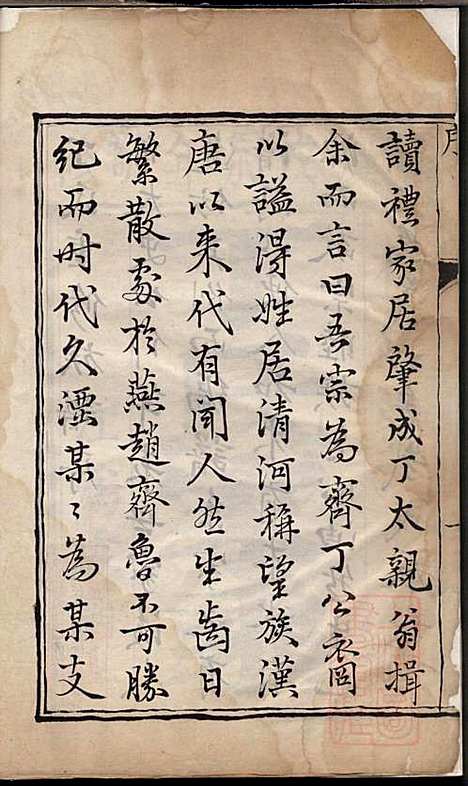 序
讀禮家居肇成丁太親翁揖
余而言曰吾宗為齊丁公裔
以諡得姓居清河稱望族漢
唐以来代有聞人然生齒日
繁散處於燕趙齊魯不可勝
紀而时代久湮某〻為某支
一